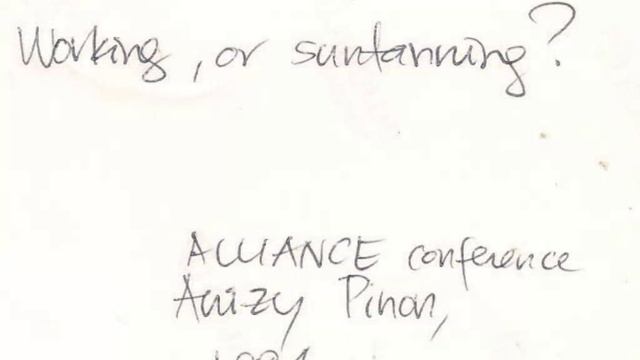 Working, or suntanning?
ALLIANCE conference
Anizy Pinon,